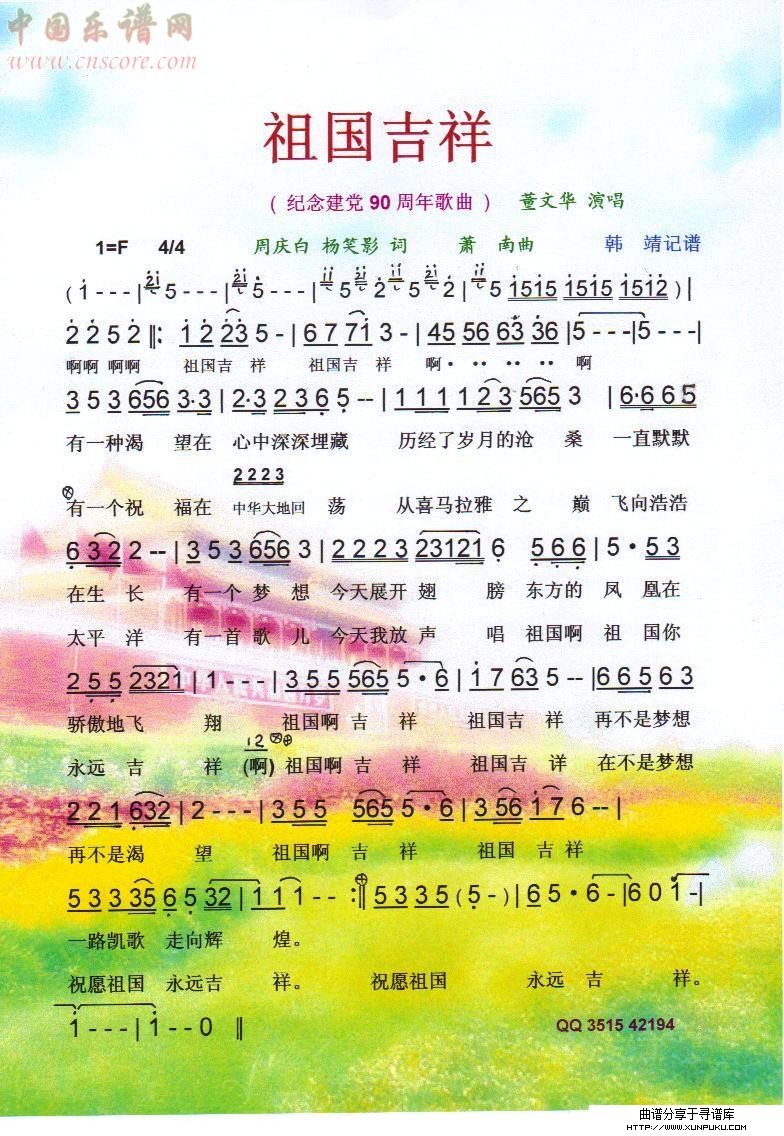 中国乐谱网
www.cnscore.com
祖国吉祥
( 纪念建党 90 周年歌曲 ) 董文华 演唱
1=F 4/4 周庆白 杨笑影 词 萧 南曲 韩 靖记谱
(1 - - - | 5 - - - | 5 - - - | 5 2 5 2 5 5 1515 1515 1512 ) |
2 2 5 2 ‖: 1 2 23 5 - | 6 7 71 3 - | 45 56 63 36 | 5 - - - | 5 - - - |
啊啊 啊啊 祖国吉 祥 祖国吉 祥 啊· · · · 啊
3 5 3 656 3·3 | 2·3 2 3 6 5 - - | 1 1 1 1 2 3 565 3 | 6·6 6 5
有一种渴 望在 心中深深埋藏 历经了岁月的沧 桑 一直默默
2 2 2 3
有一个祝 福在 中华大地回 荡 从喜马拉雅 之 巅 飞向浩浩
6 3 2 2 - - | 3 5 3 656 3 | 2 2 2 3 23121 6 5 6 6 | 5 · 5 3
在生 长 有一个 梦 想 今天展开 翅 膀 东方的 凤 凰在
太平 洋 有一首 歌 儿 今天我放 声 唱 祖国啊 祖 国你
2 5 5 2321 | 1 - - - | 3 5 5 565 5 · 6 | 1 7 63 5 - - | 6 6 5 6 3
骄傲地飞 翔 祖国啊 吉 祥 祖国吉 祥 再不是梦想
12
永远 吉 祥 (啊) 祖国啊 吉 祥 祖国吉 详 在不是梦想
2 2 1 632 | 2 - - - | 3 5 5 565 5 · 6 | 3 56 1 7 6 - - |
再不是渴 望 祖国啊 吉 祥 祖国 吉 祥
5 3 3 35 6 5 32 | 1 1 1 - - :‖ 5 3 3 5 ( 5 - ) | 6 5 · 6 - | 6 0 1 - |
一路凯歌 走向辉 煌。
祝愿祖国 永远吉 祥。 祝愿祖国 永远 吉 祥。
1 - - - | 1 - - 0 ‖
QQ 3515 42194
曲谱分享于寻谱库
HTTP://WWW.XUNPUKU.COM